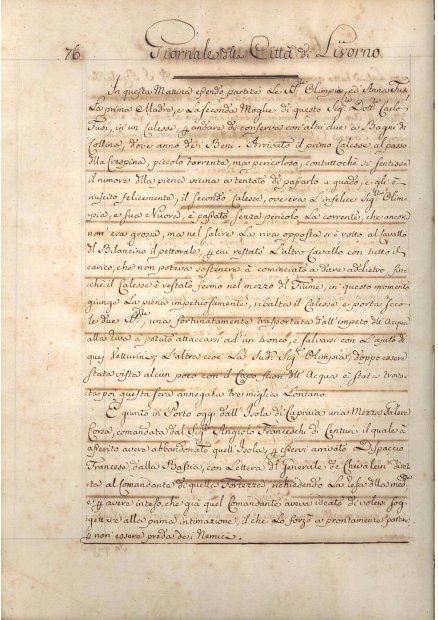 76 Giornale della Città di Livorno.
In questa Mattina essendo partite Le SS.re Olimpia, ed Anna Fusi
La prima Madre, e La Seconda Moglie di questo Sig.re Dott. Carlo
Fusi, in un Calesse, p andare di conserva con altri due a Bagni di
Collina, dove anno dei Beni. Arrivato il primo Calesse al passo
della Crespina, piccolo torrente, ma pericoloso, contuttochè si sentisse
il rumore della piena vicina a tentato di passarlo a guado, e gli è
riuscito felicemente, il secondo Calesse, ove era L'infelice Sig.ra Olim-
pia, e sua Nuora, è passato senza pericolo La corrente, che ancor
non era grossa, ma nel salire La riva opposta si è rotto al Cavallo
di Bilancino il pettorale, p cui restato L'altro Cavallo con tutto il
carico, che non poteva sostenere à cominciato a dare addietro, fin-
chè il Calesse è restato fermo nel mezzo di Fiume, in questo momento
giunge La piena impetuosamente, ribalta il Calesse e porta seco
le due SS.re, una fortunatamente trasportata dall'impeto dell'Acqua
alla riva à potuto attaccarsi ad un tronco, e salvarsi con L'ajuto di
quei Vetturini, L'altra cioè La Sud.a Sig.ra Olimpia, doppo essere
stata vista alcun poco con il Capo fuori dell'Acqua è stata trova-
ta poi questa sera annegata tre miglia Lontano.
È giunto in Porto oggi dall'Isola di Capraia una Mezza Galera
Corsa, comandata dal Sig.re Angiolo Franceschi di Centuri il quale à
asserito avere abbandonato quell'Isola, p esservi arrivato Dispaccio
Francese dalla Bastia, con Lettera del Generale de Chevalein diret-
ta al Comandante di quella Fortezza richiedendo La resa della mede.
e p avere inteso, che già quel Comandante aveva ideato di volersi sog-
gettare alla prima intimazione, il che Lo forzò a prontamente partire
p non essere preda de Nemici.